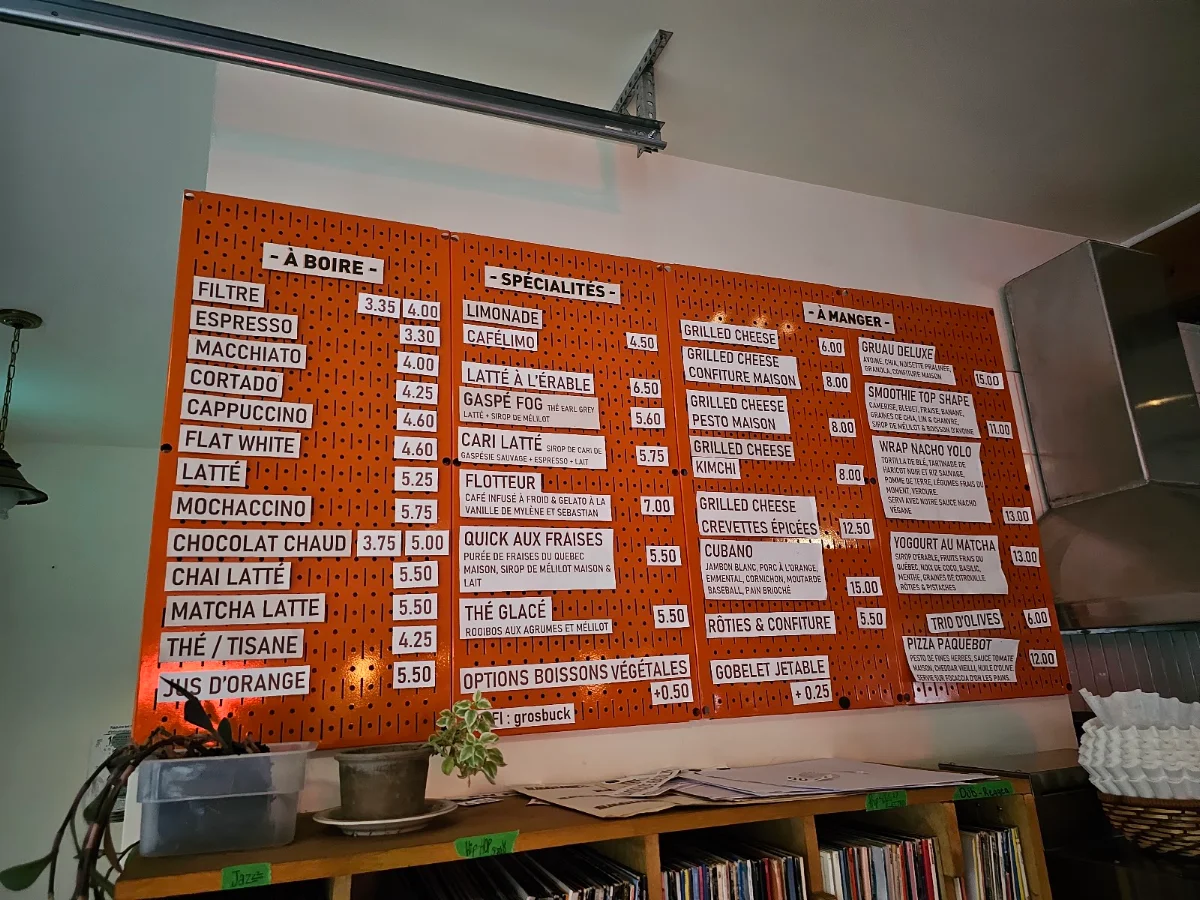 - À BOIRE -
FILTRE 3.35 4.00
ESPRESSO 3.30
MACCHIATO 4.00
CORTADO 4.25
CAPPUCCINO 4.60
FLAT WHITE 4.60
LATTÉ 5.25
MOCHACCINO 5.75
CHOCOLAT CHAUD 3.75 5.00
CHAI LATTÉ 5.50
MATCHA LATTE 5.50
THÉ / TISANE 4.25
JUS D'ORANGE 5.50
- SPÉCIALITÉS -
LIMONADE
CAFÉLIMO 4.50
LATTÉ À L'ÉRABLE 6.50
GASPÉ FOG THÉ EARL GREY
LATTÉ + SIROP DE MÉLILOT 5.60
CARI LATTÉ SIROP DE CARI DE
GASPÉSIE SAUVAGE + ESPRESSO + LAIT 5.75
FLOTTEUR
CAFÉ INFUSÉ À FROID & GELATO À LA
VANILLE DE MYLÈNE ET SEBASTIAN 7.00
QUICK AUX FRAISES
PURÉE DE FRAISES DU QUEBEC
MAISON, SIROP DE MÉLILOT MAISON &
LAIT 5.50
THÉ GLACÉ
ROOIBOS AUX AGRUMES ET MÉLILOT 5.50
OPTIONS BOISSONS VÉGÉTALES
+0.50
FI : grosbuck
- À MANGER -
GRILLED CHEESE 6.00
GRILLED CHEESE
CONFITURE MAISON 8.00
GRILLED CHEESE
PESTO MAISON 8.00
GRILLED CHEESE
KIMCHI 8.00
GRILLED CHEESE
CREVETTES ÉPICÉES 12.50
CUBANO
JAMBON BLANC, PORC À L'ORANGE,
EMMENTAL, CORNICHON, MOUTARDE
BASEBALL, PAIN BRIOCHÉ 15.00
RÔTIES & CONFITURE 5.50
GOBELET JETABLE
+ 0.25
GRUAU DELUXE
AVOINE, CHIA, NOISETTE PRALINÉE,
GRANOLA, CONFITURE MAISON 15.00
SMOOTHIE TOP SHAPE
CAMERISE, BLEUET, FRAISE, BANANE,
GRAINES DE CHIA, LIN & CHANVRE,
SIROP DE MÉLILOT & BOISSON D'AVOINE 11.00
WRAP NACHO YOLO
TORTILLA DE BLÉ, TARTINADE DE
HARICOT NOIR ET RIZ SAUVAGE,
POMME DE TERRE, LÉGUMES FRAIS DU
MOMENT, VERDURE.
SERVI AVEC NOTRE SAUCE NACHO
VÉGANE 13.00
YOGOURT AU MATCHA
SIROP D'ÉRABLE, FRUITS FRAIS DU
QUÉBEC, NOIX DE COCO, BASILIC,
MENTHE, GRAINES DE CITROUILLE
RÔTIES & PISTACHES 13.00
TRIO D'OLIVES 6.00
PIZZA PAQUEBOT
PESTO DE FINES HERBES, SAUCE TOMATE
MAISON, CHEDDAR VIEILLI, HUILE D'OLIVE
SERVIE SUR FOCACCIA D'ON LES PAINS 12.00
Jazz
DUB - Reggae